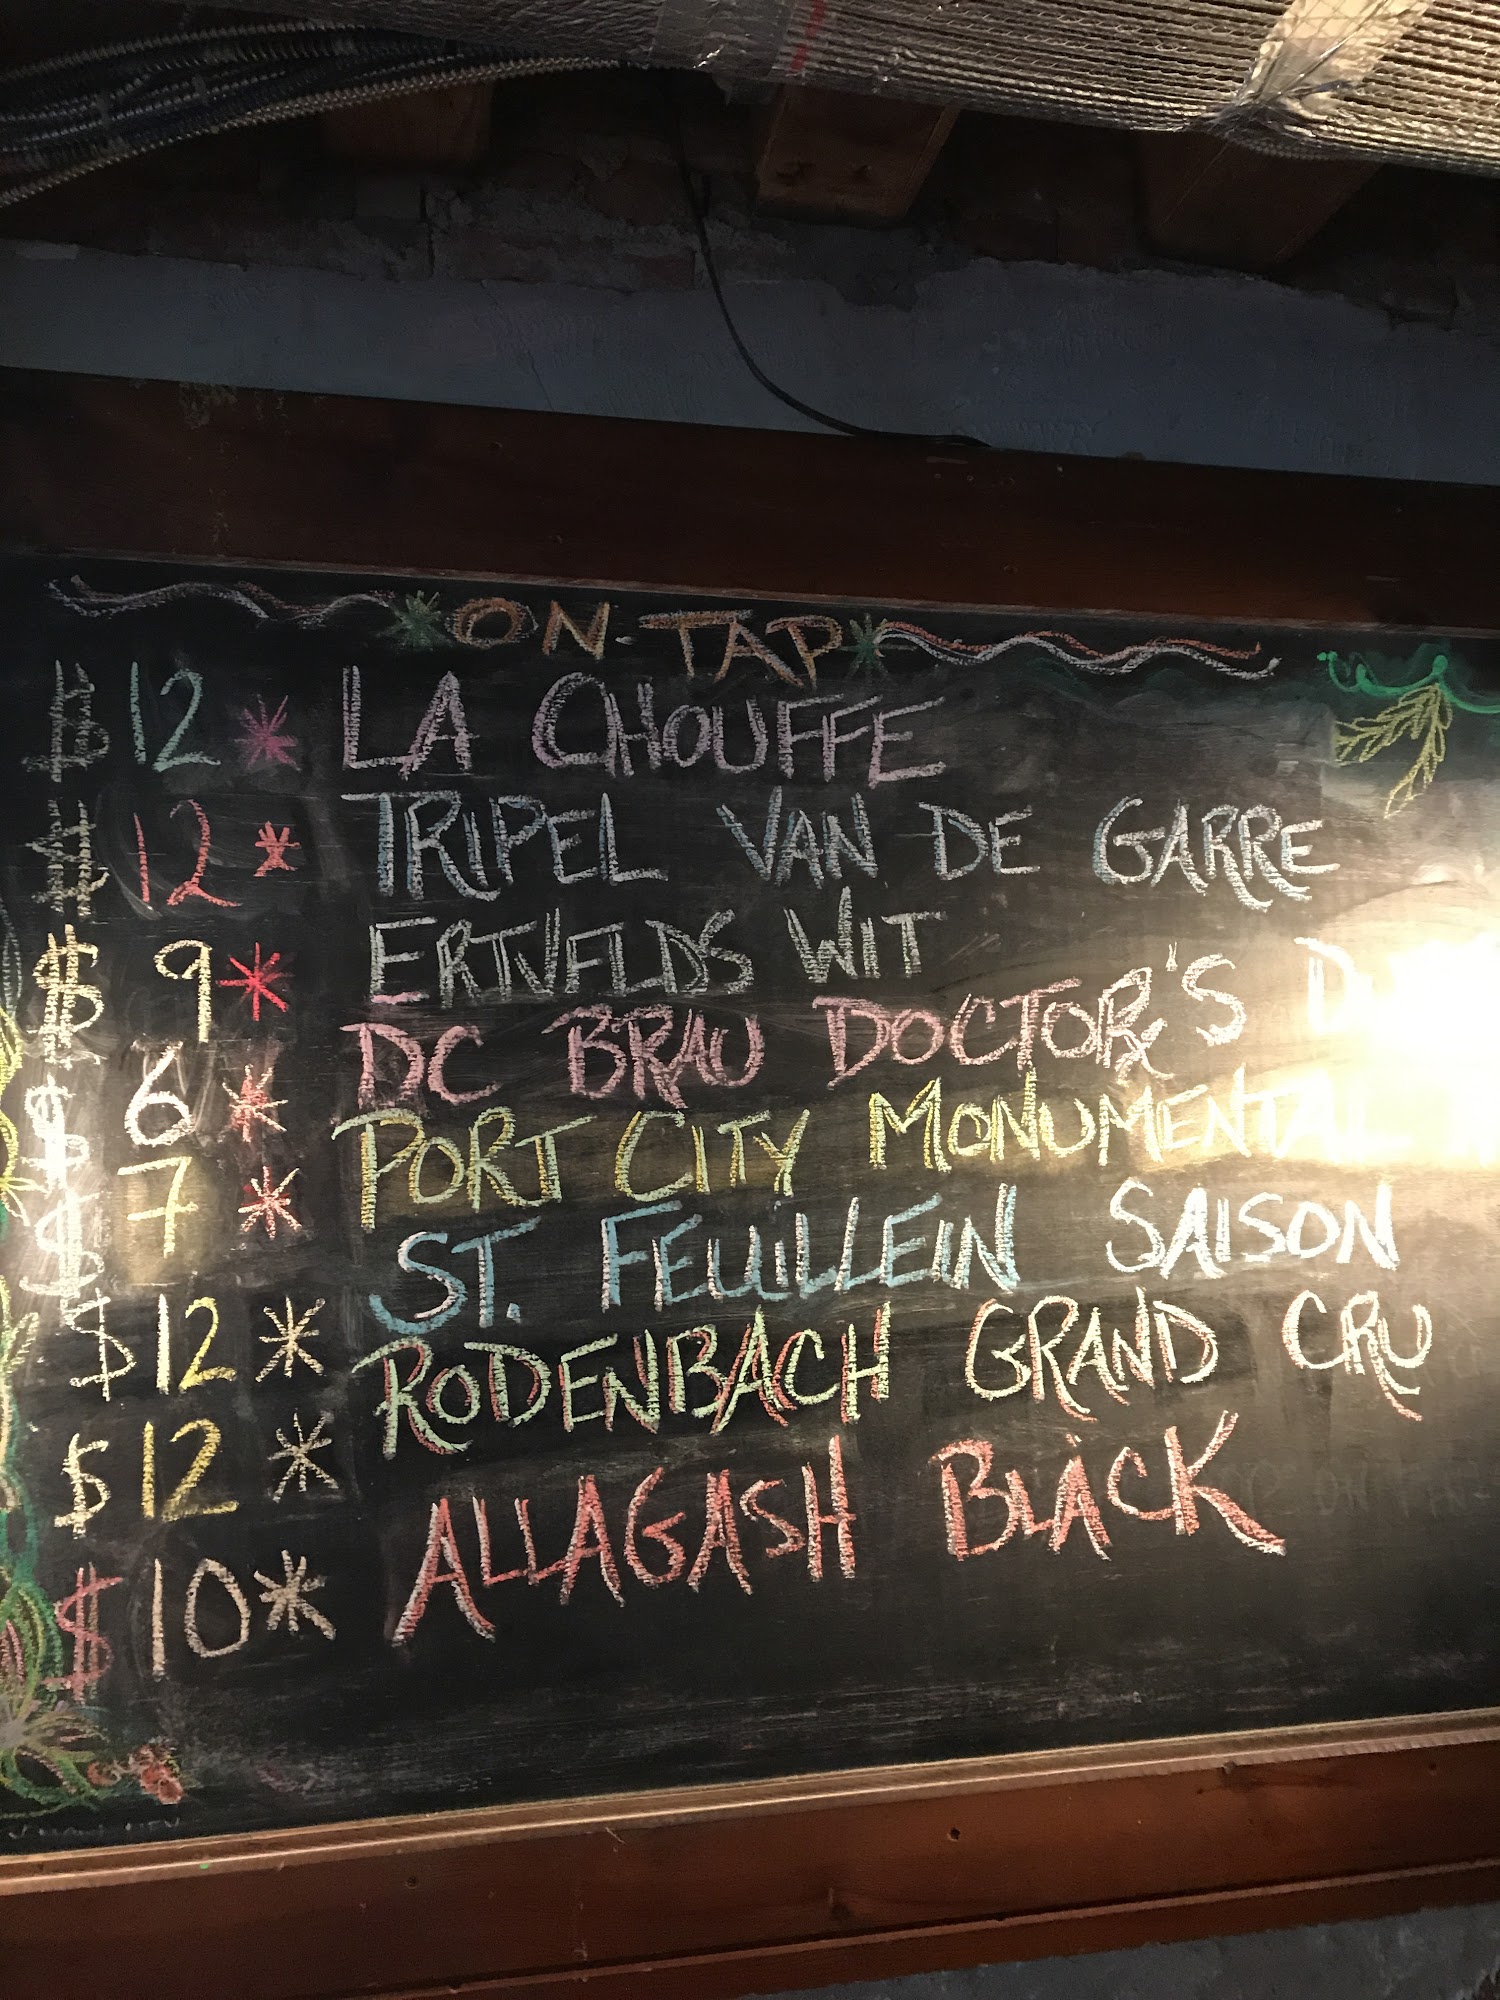 ON TAP
$ 12 * LA CHOUFFE
$ 12 * TRIPEL VAN DE GARRE
$ 9 * ERTVELDS WIT
$ 6 * DC BRAU DOCTOR'S
$ 7 * PORT CITY MONUMENTAL
$ 12 * ST. FEUILLEIN SAISON
$ 12 * RODENBACH GRAND CRU
$ 10 * ALLAGASH BLACK